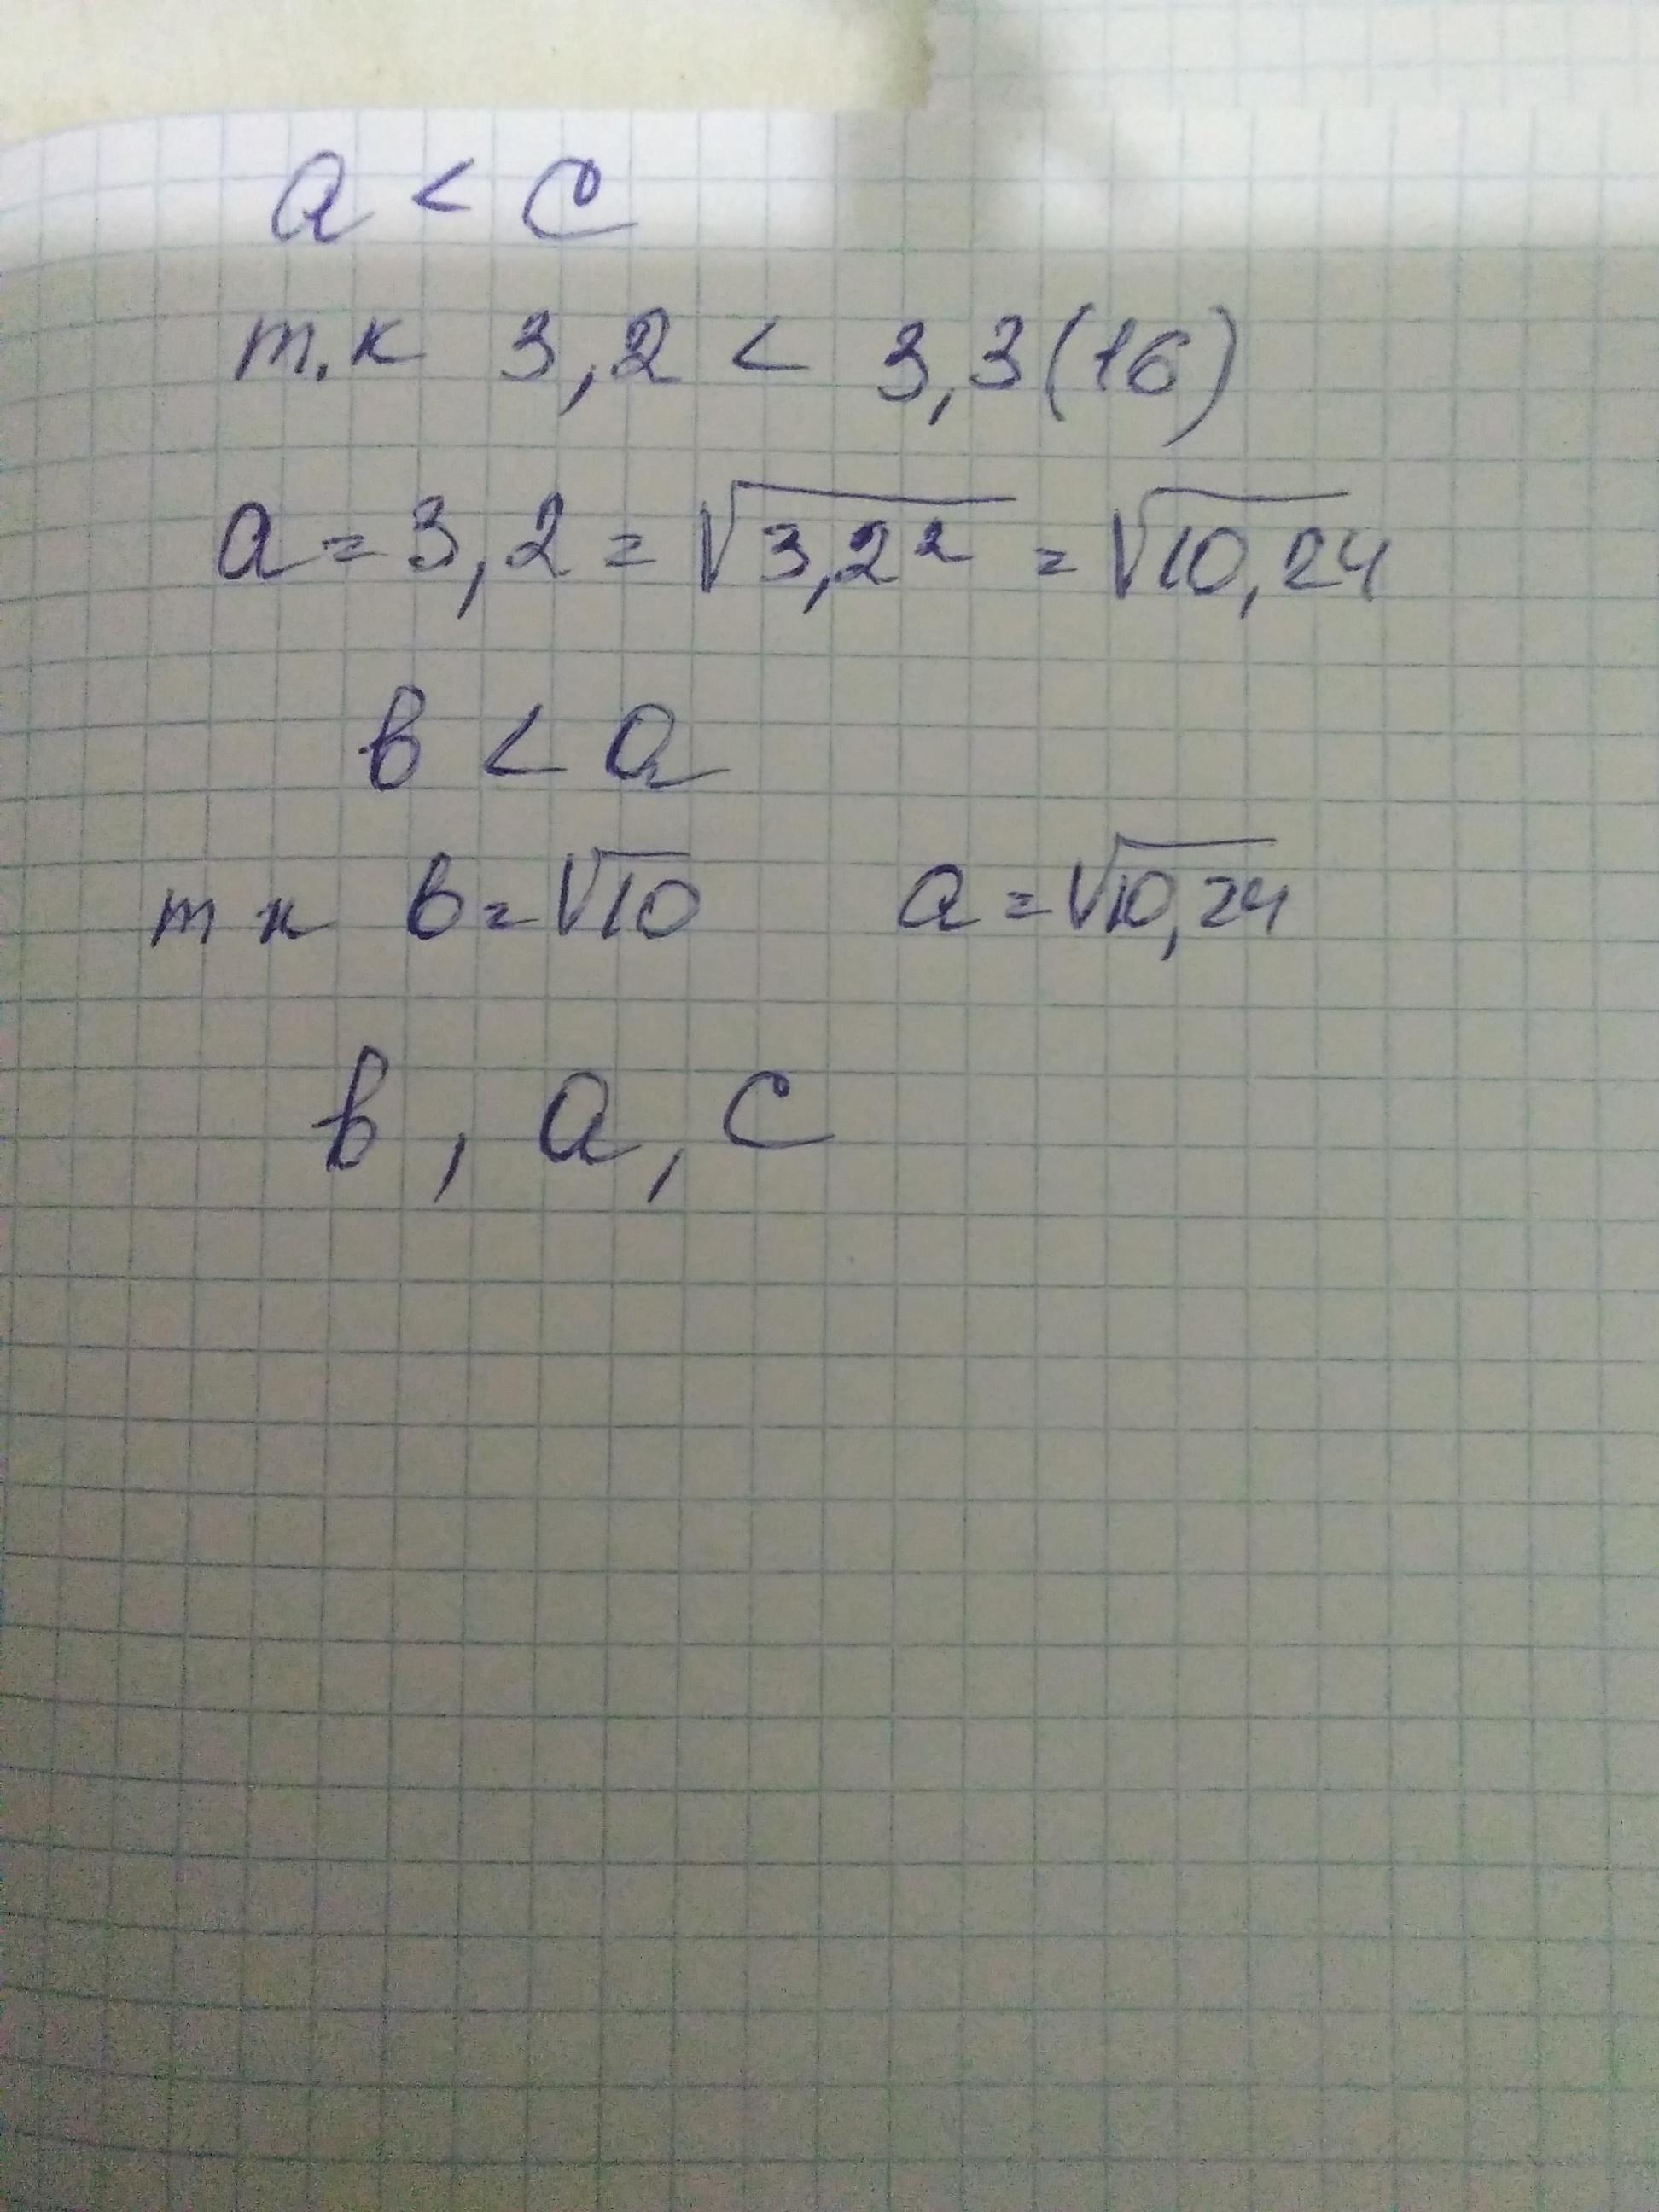 a < c
т.к 3,2 < 3,3(16)
a = 3,2 = √3,2² = √10,24
b < a
т к b = √10 a = √10,24
b, a, c